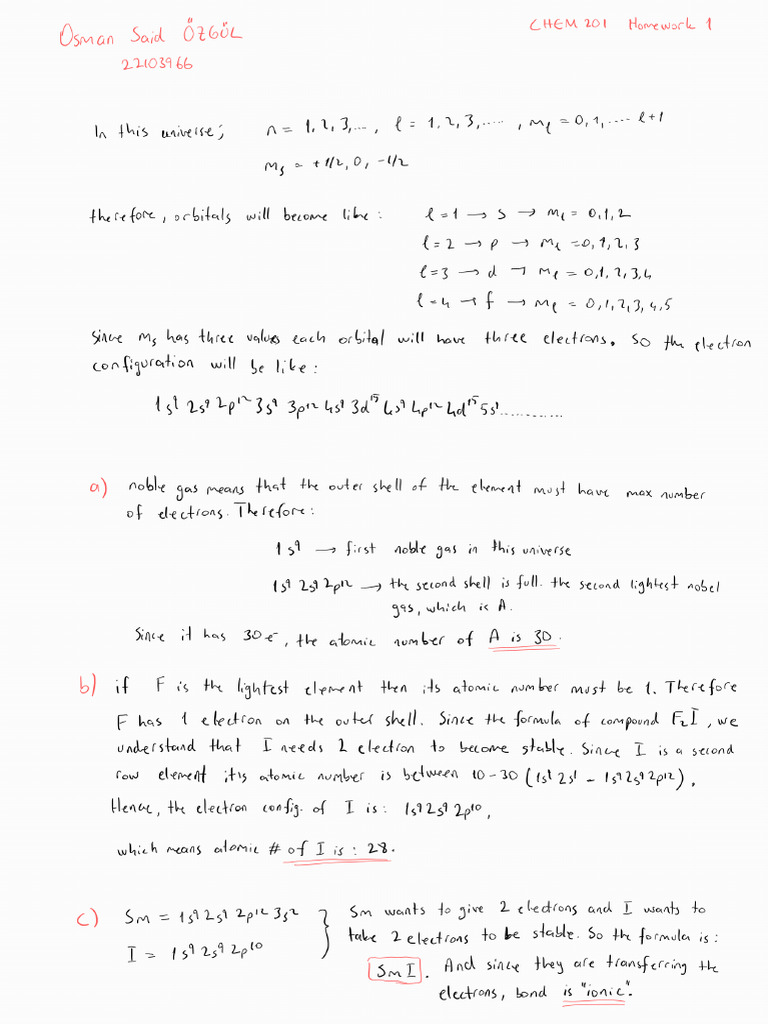 Osman Said ÖZGÜL
CHEM 201 Homework 1
22103966
In this universe; n = 1, 2, 3, ... , ℓ = 1, 2, 3, ..... , mℓ = 0, 1, .... ℓ+1
ms = +1/2, 0, -1/2
therefore, orbitals will become like: ℓ=1 → s → mℓ = 0,1,2
ℓ=2 → p → mℓ =0,1,2,3
ℓ=3 → d → mℓ = 0,1,2,3,4
ℓ=4 → f → mℓ = 0,1,2,3,4,5
Since ms has three values each orbital will have three electrons. So the electron
configuration will be like:
1s⁹ 2s⁹ 2p¹² 3s⁹ 3p¹² 4s⁹ 3d¹⁵ 4s⁹ 4p¹² 4d¹⁵ 5s¹............
a) noble gas means that the outer shell of the element must have max number
of electrons. Therefore:
1s⁹ → first noble gas in this universe
1s⁹ 2s⁹ 2p¹² → the second shell is full. the second lightest nobel
gas, which is A.
Since it has 30 e⁻, the atomic number of A is 30.
b) if F is the lightest element then its atomic number must be 1. Therefore
F has 1 electron on the outer shell. Since the formula of compound F₂I, we
understand that I needs 2 electron to become stable. Since I is a second
row element it's atomic number is between 10-30 (1s⁹ 2s¹ - 1s⁹ 2s⁹ 2p¹²).
Hence, the electron config. of I is: 1s⁹ 2s⁹ 2p¹⁰,
which means atomic # of I is: 28.
c) Sm = 1s⁹ 2s⁹ 2p¹² 3s² } Sm wants to give 2 electrons and I wants to
I = 1s⁹ 2s⁹ 2p¹⁰ take 2 electrons to be stable. So the formula is:
SmI. And since they are transferring the
electrons, bond is "ionic".